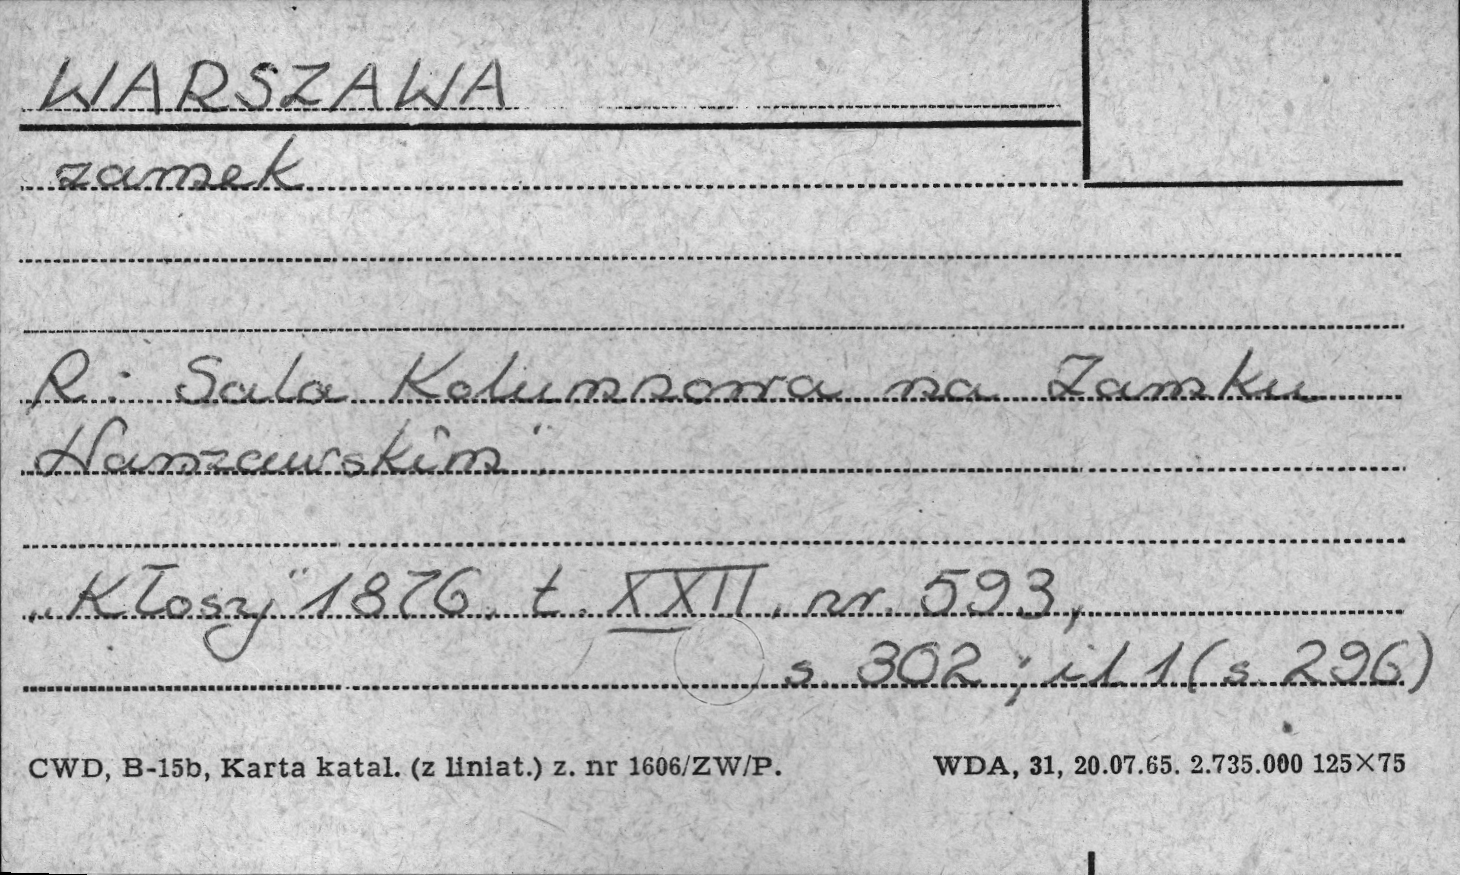 WARSZAWA
zamek
R: Sala Kolumnowa na Zamku
Warszawskim".
„Kłosy" 1876, t. XXII, nr. 593,
s 302 ; il 1 (s. 296)
CWD, B-15b, Karta katal. (z liniat.) z. nr 1606/ZW/P. WDA, 31, 20.07.65. 2.735.000 125×75